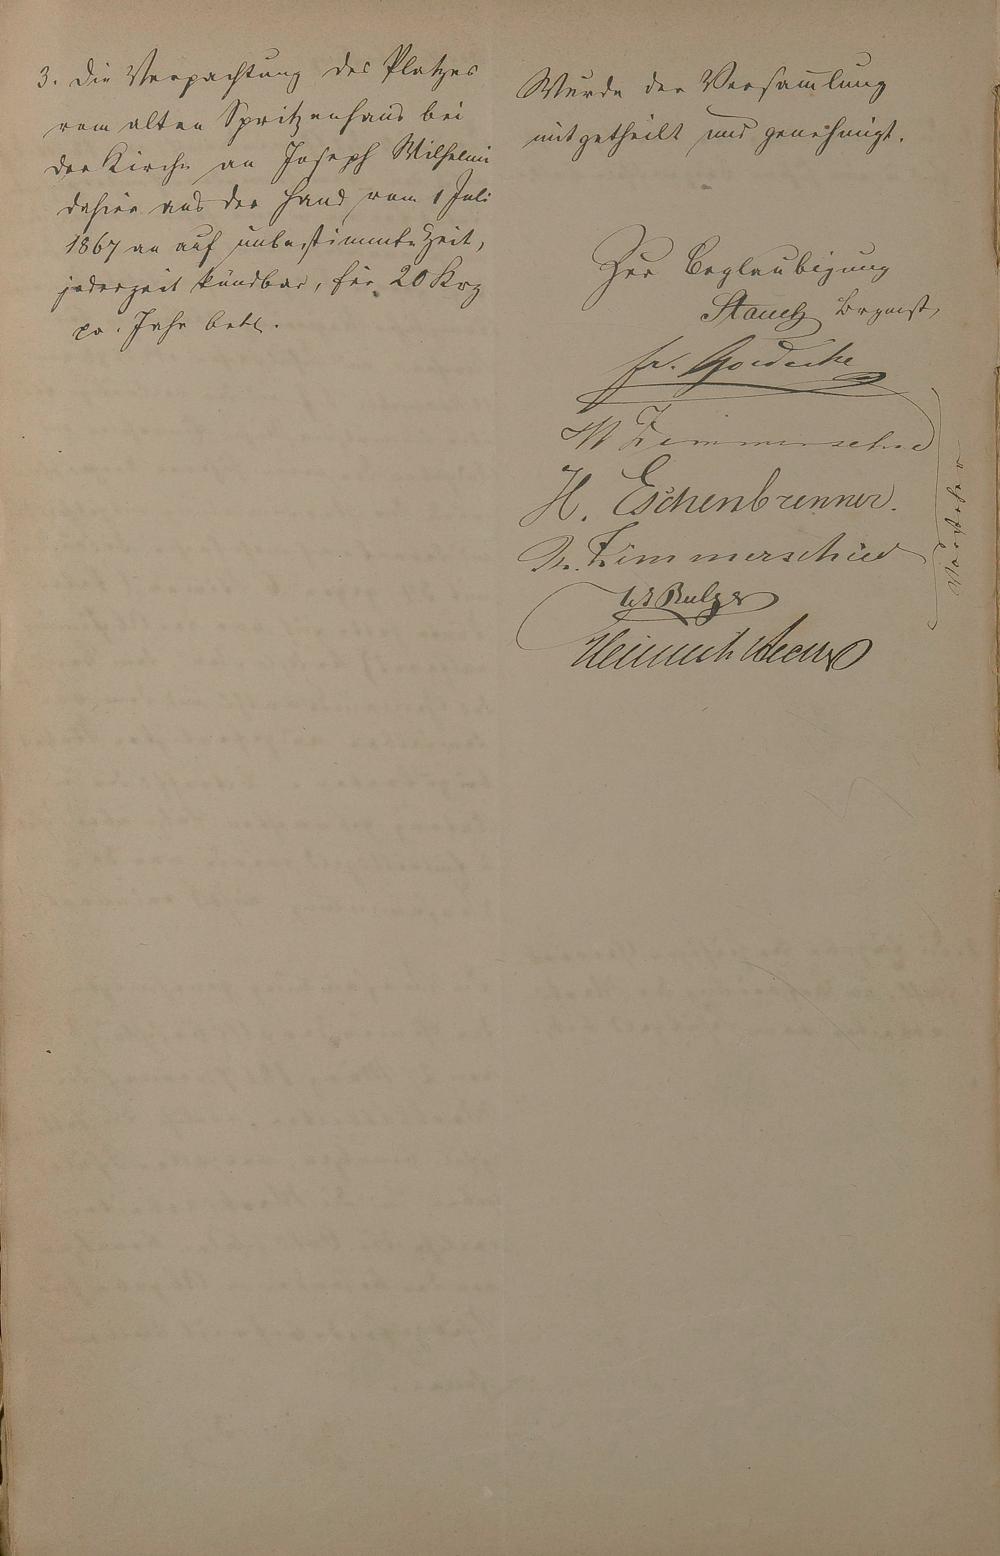 3. Die Verpachtung des Platzes
vom alten Spritzenhaus bei
der Kirche an Joseph Wilhelmi
dahier aus der Hand vom 1 Juli
1867 an auf unbestimmte Zeit,
jederzeit kündbar, für 20 Krz
pr. Jahr betr.
Wurde der Versam̄lung
mitgetheilt und genehmigt.
Zur Beglaubigung
Stauch Brgmst,
fr. Goedecke
W Zimmerschied
H. Eschenbrenner.
Zimmerschied
Heinrich
Vorsteher